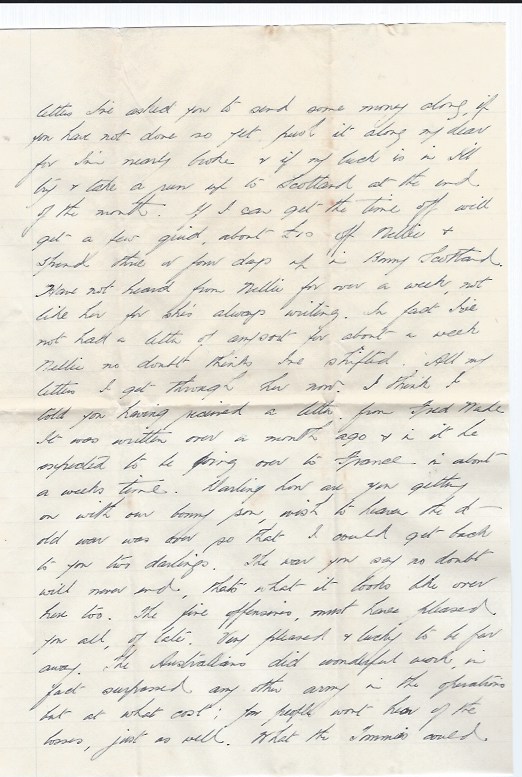 letters I've asked you to send some money along, if
you have not done so yet push it along my dear
for I'm nearly broke & if my luck is in I'll
try & take a run up to Scotland at the end
of the month. If I can get the time off will
get a few quid, about £10 off Nellie &
spend three or four days up in Bonny Scotland.
Have not heard from Nellie for over a week not
like her for she's always writing. In fact I've
not had a letter of any sort for about a week
Nellie no doubt thinks I've shifted. All my
letters I get through her now. I think I
told you having received a letter from Fred
It was written over a month ago & in it he
expected to be going over to France in about
a weeks time. Darling how are you getting
on with our bonny son, wish to heaven the d—
old war was over so that I could get back
to you two darlings. The war you say no doubt
will never end, thats what it looks like over
here too. The five offensives, must have pleased
you all, of late. Very pleased & lucky to be far
away. The Australians did wonderful work, in
fact surpassed any other army in the operations
but at what cost; you people wont hear of the
losses, just as well. What the Tommies could